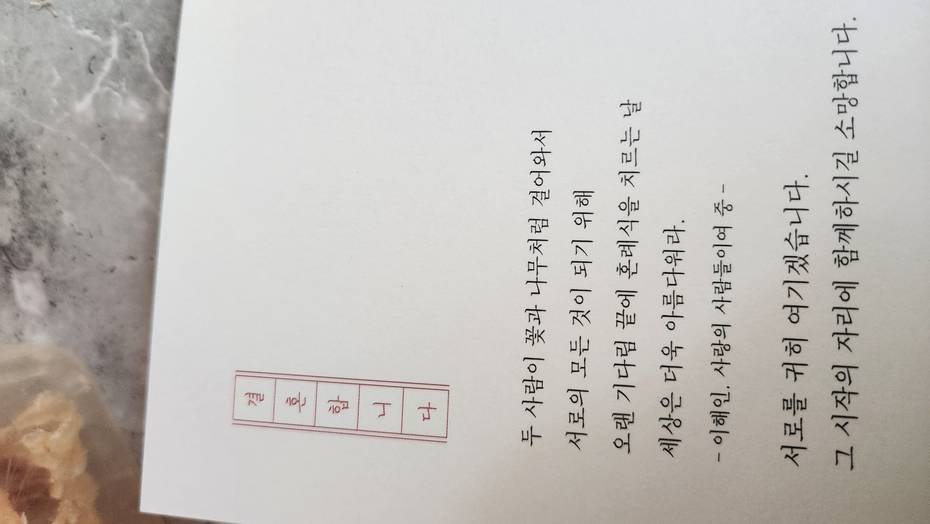 결혼합니다
두 사람이 꽃과 나무처럼 걸어와서
서로의 모든 것이 되기 위해
오랜 기다림 끝에 혼례식을 치르는 날
세상은 더욱 아름다워라.
- 이해인. 사랑의 사람들이여 중 -
서로를 귀히 여기겠습니다.
그 시작의 자리에 함께하시길 소망합니다.